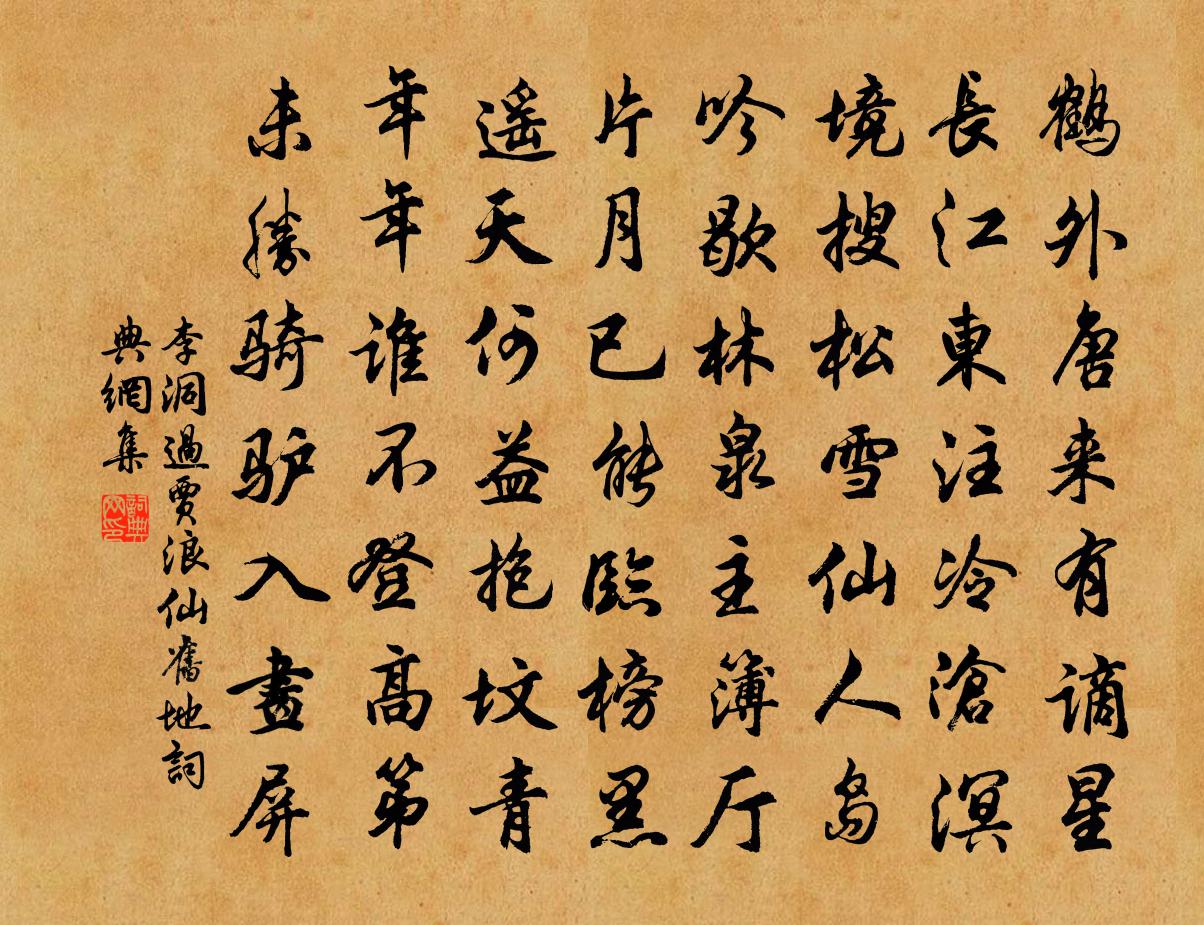 鹤外唐来有谪星
長江東注冷滄溟
境搜松雪仙人岛
吟歇林泉主簿厅
片月已能臨榜黑
遥天何益抱坟青
年年谁不登高第
未勝骑驴入畫屏
李洞過賈浪仙舊地詞
典網集
詞典
网印